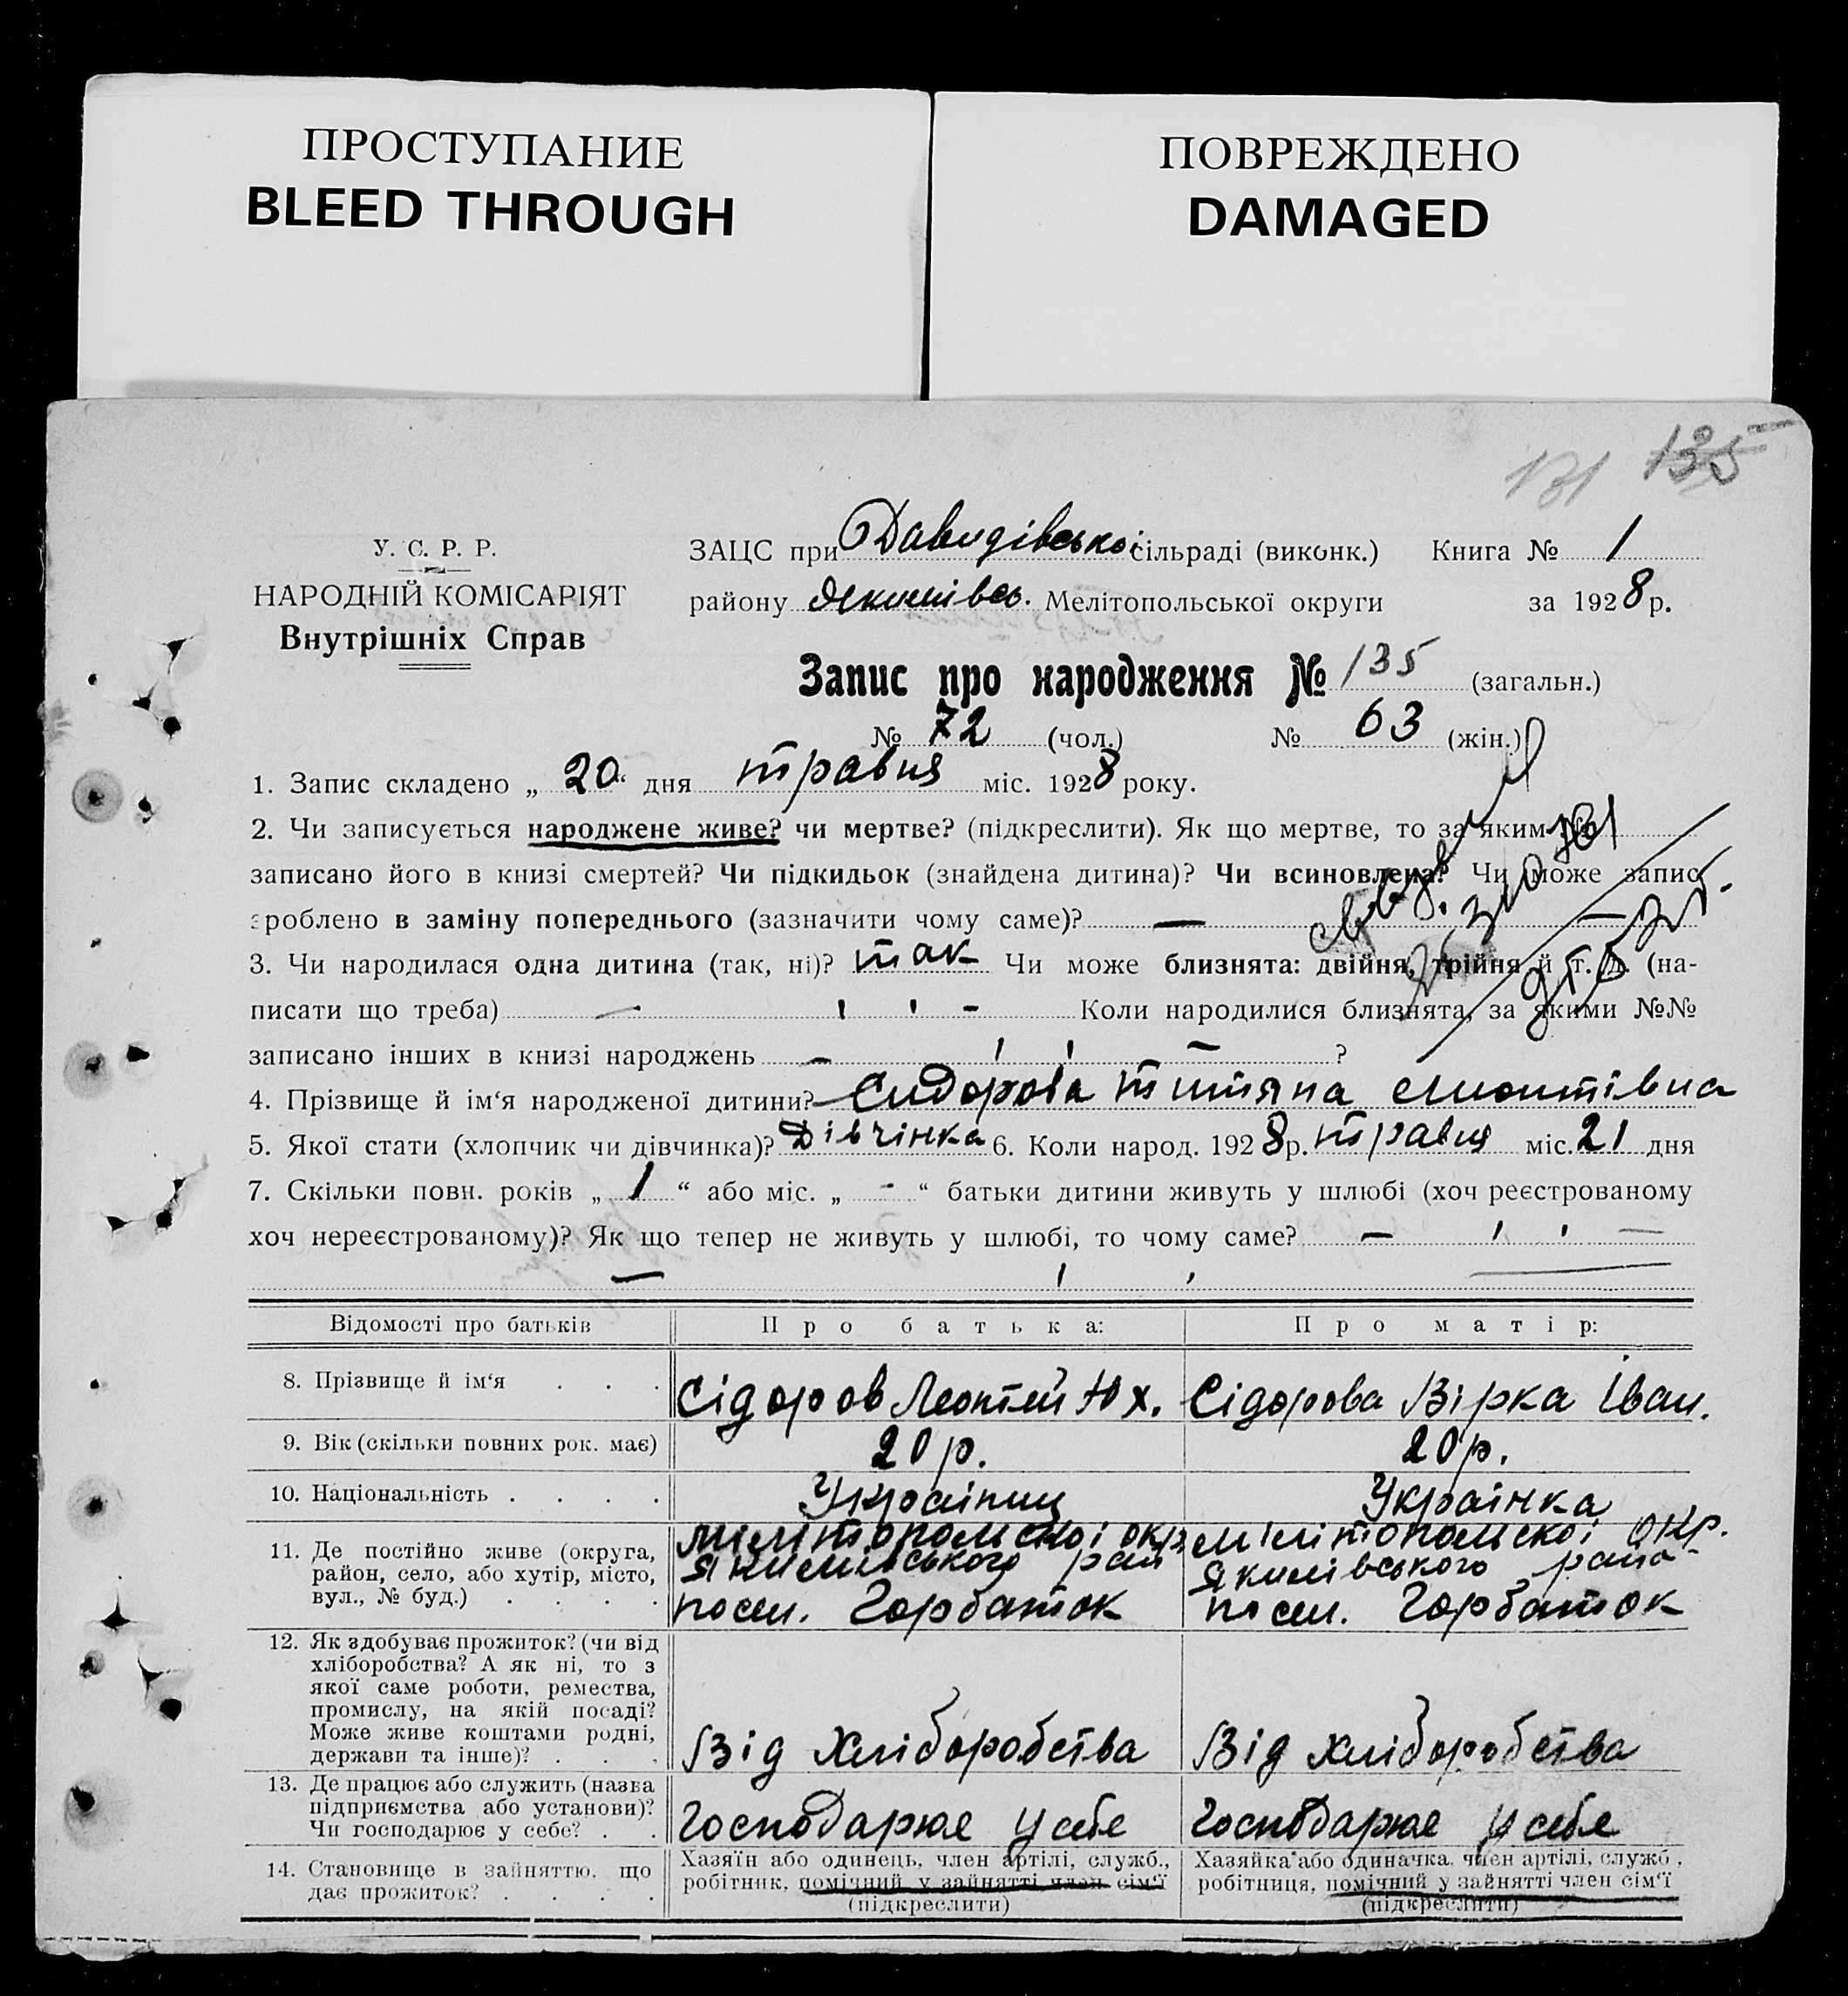 ПРОСТУПАНИЕ
BLEED THROUGH
ПОВРЕЖДЕНО
DAMAGED
131 135
У. С. Р. Р.
НАРОДНІЙ КОМІСАРІЯТ
Внутрішніх Справ
ЗАЦС при Давидівської сільраді (виконк.) Книга № 1
району Якимівсь. Мелітопольської округи за 1928 р.
Запис про народження № 135 (загальн.)
№ 72 (чол.) № 63 (жін.)
1. Запис складено „ 20 “ дня травня міс. 1928 року.
2. Чи записується народжене живе? чи мертве? (підкреслити). Як що мертве, то за яким №
записано його в книзі смертей? Чи підкидьок (знайдена дитина)? Чи всиновлена? Чи може запис
зроблено в заміну попереднього (зазначити чому саме)? —
3. Чи народилася одна дитина (так, ні)? так Чи може близнята: двійня, трійня й т. д. (на-
писати що треба) — Коли народилися близнята, за якими №№
записано інших в книзі народжень — ?
4. Прізвище й ім‘я народженої дитини? Сидорова
5. Якої стати (хлопчик чи дівчинка)? Дівчінка 6. Коли народ. 1928 р. травня міс. 21 дня
7. Скільки повн. років „ 1 “ або міс. „ - “ батьки дитини живуть у шлюбі (хоч реєстрованому
хоч нереєстрованому)? Як що тепер не живуть у шлюбі, то чому саме? —
Відомості про батьків Про батька: Про матір:
8. Прізвище й ім‘я . . . Сідоров Леонтей Юх. Сідорова Вірка Іван.
9. Вік (скільки повних рок. має) 20 р. 20 р.
10. Національність . . . . Українець Українка
11. Де постійно живе (округа,
район, село, або хутір, місто,
вул., № буд.) . . . .
Мілітопольскої окр.
Якимівського рай
посел. Горбаток
Мілітопольскої окр.
Якимівського района
посел. Горбаток
12. Як здобуває прожиток? (чи від
хліборобства? А як ні, то з
якої саме роботи, ремества,
промислу, на якій посаді?
Може живе коштами родні,
держави та інше)? . . .
Від хліборобства
Від хліборобства
13. Де працює або служить (назва
підприємства або установи)?
Чи господарює у себе? . .
Господарює у себе
Господарює у себе
14. Становище в зайняттю, що
дає прожиток? . . . .
Хазяїн або одинець, член артілі, служб.,
робітник, помічний у зайнятті член сім‘ї
(підкреслити)
Хазяйка або одиначка, член артілі, служб.,
робітниця, помічний у зайнятті член сім‘ї
(підкреслити)